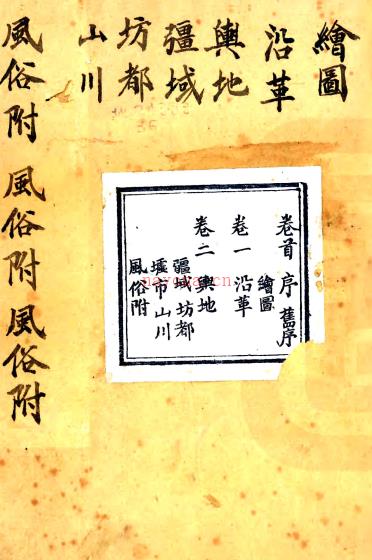 繪圖
沿革
輿地
疆域
坊都
山川
風俗附 風俗附 風俗附
卷首 序 舊序
繪圖
卷一 沿革
卷二 輿地
疆域 坊都
墟市 山川
風俗附